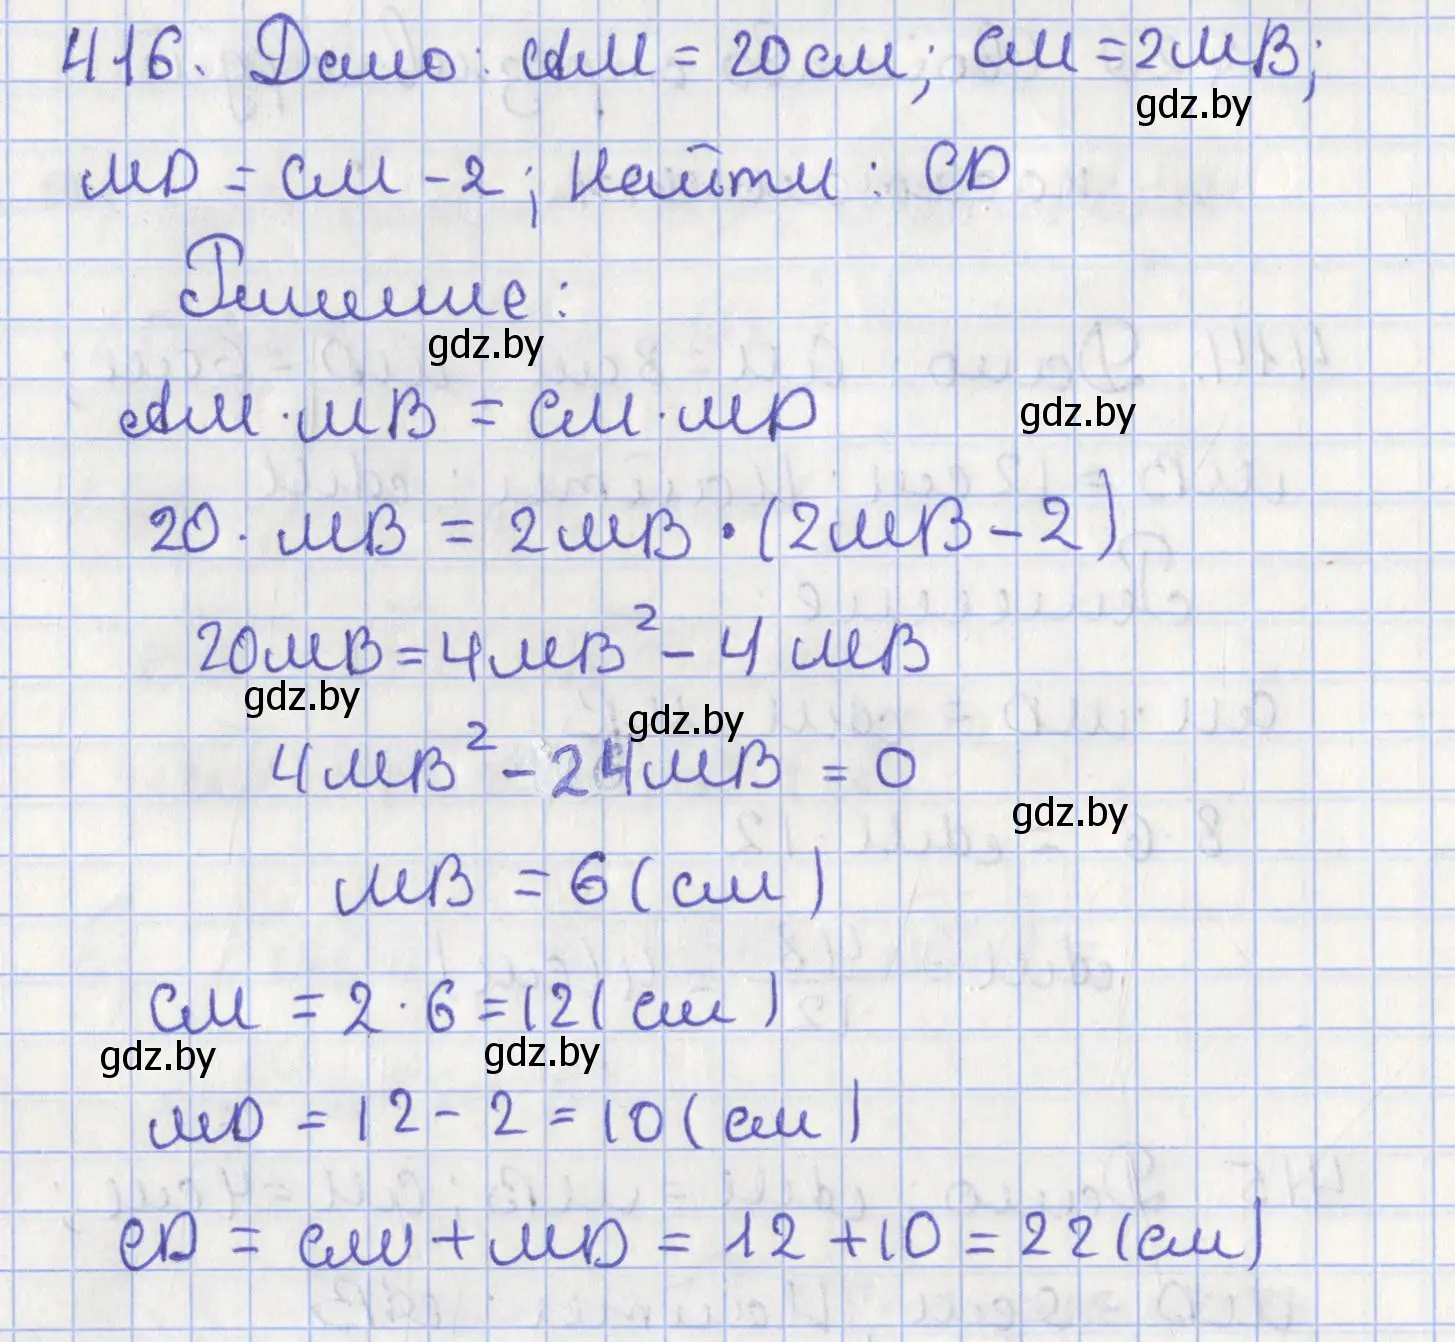 416. Дано: AM = 20 см; CM = 2MB;
gdz.by
MD = CM - 2; Найти: CD
Решение:
gdz.by
AM · MB = CM · MD
gdz.by
20 · MB = 2MB · (2MB - 2)
20MB = 4MB² - 4MB
gdz.by
gdz.by
4MB² - 24MB = 0
gdz.by
MB = 6 (см)
CM = 2 · 6 = 12 (см)
gdz.by gdz.by
MD = 12 - 2 = 10 (см)
CD = CM + MD = 12 + 10 = 22 (см)